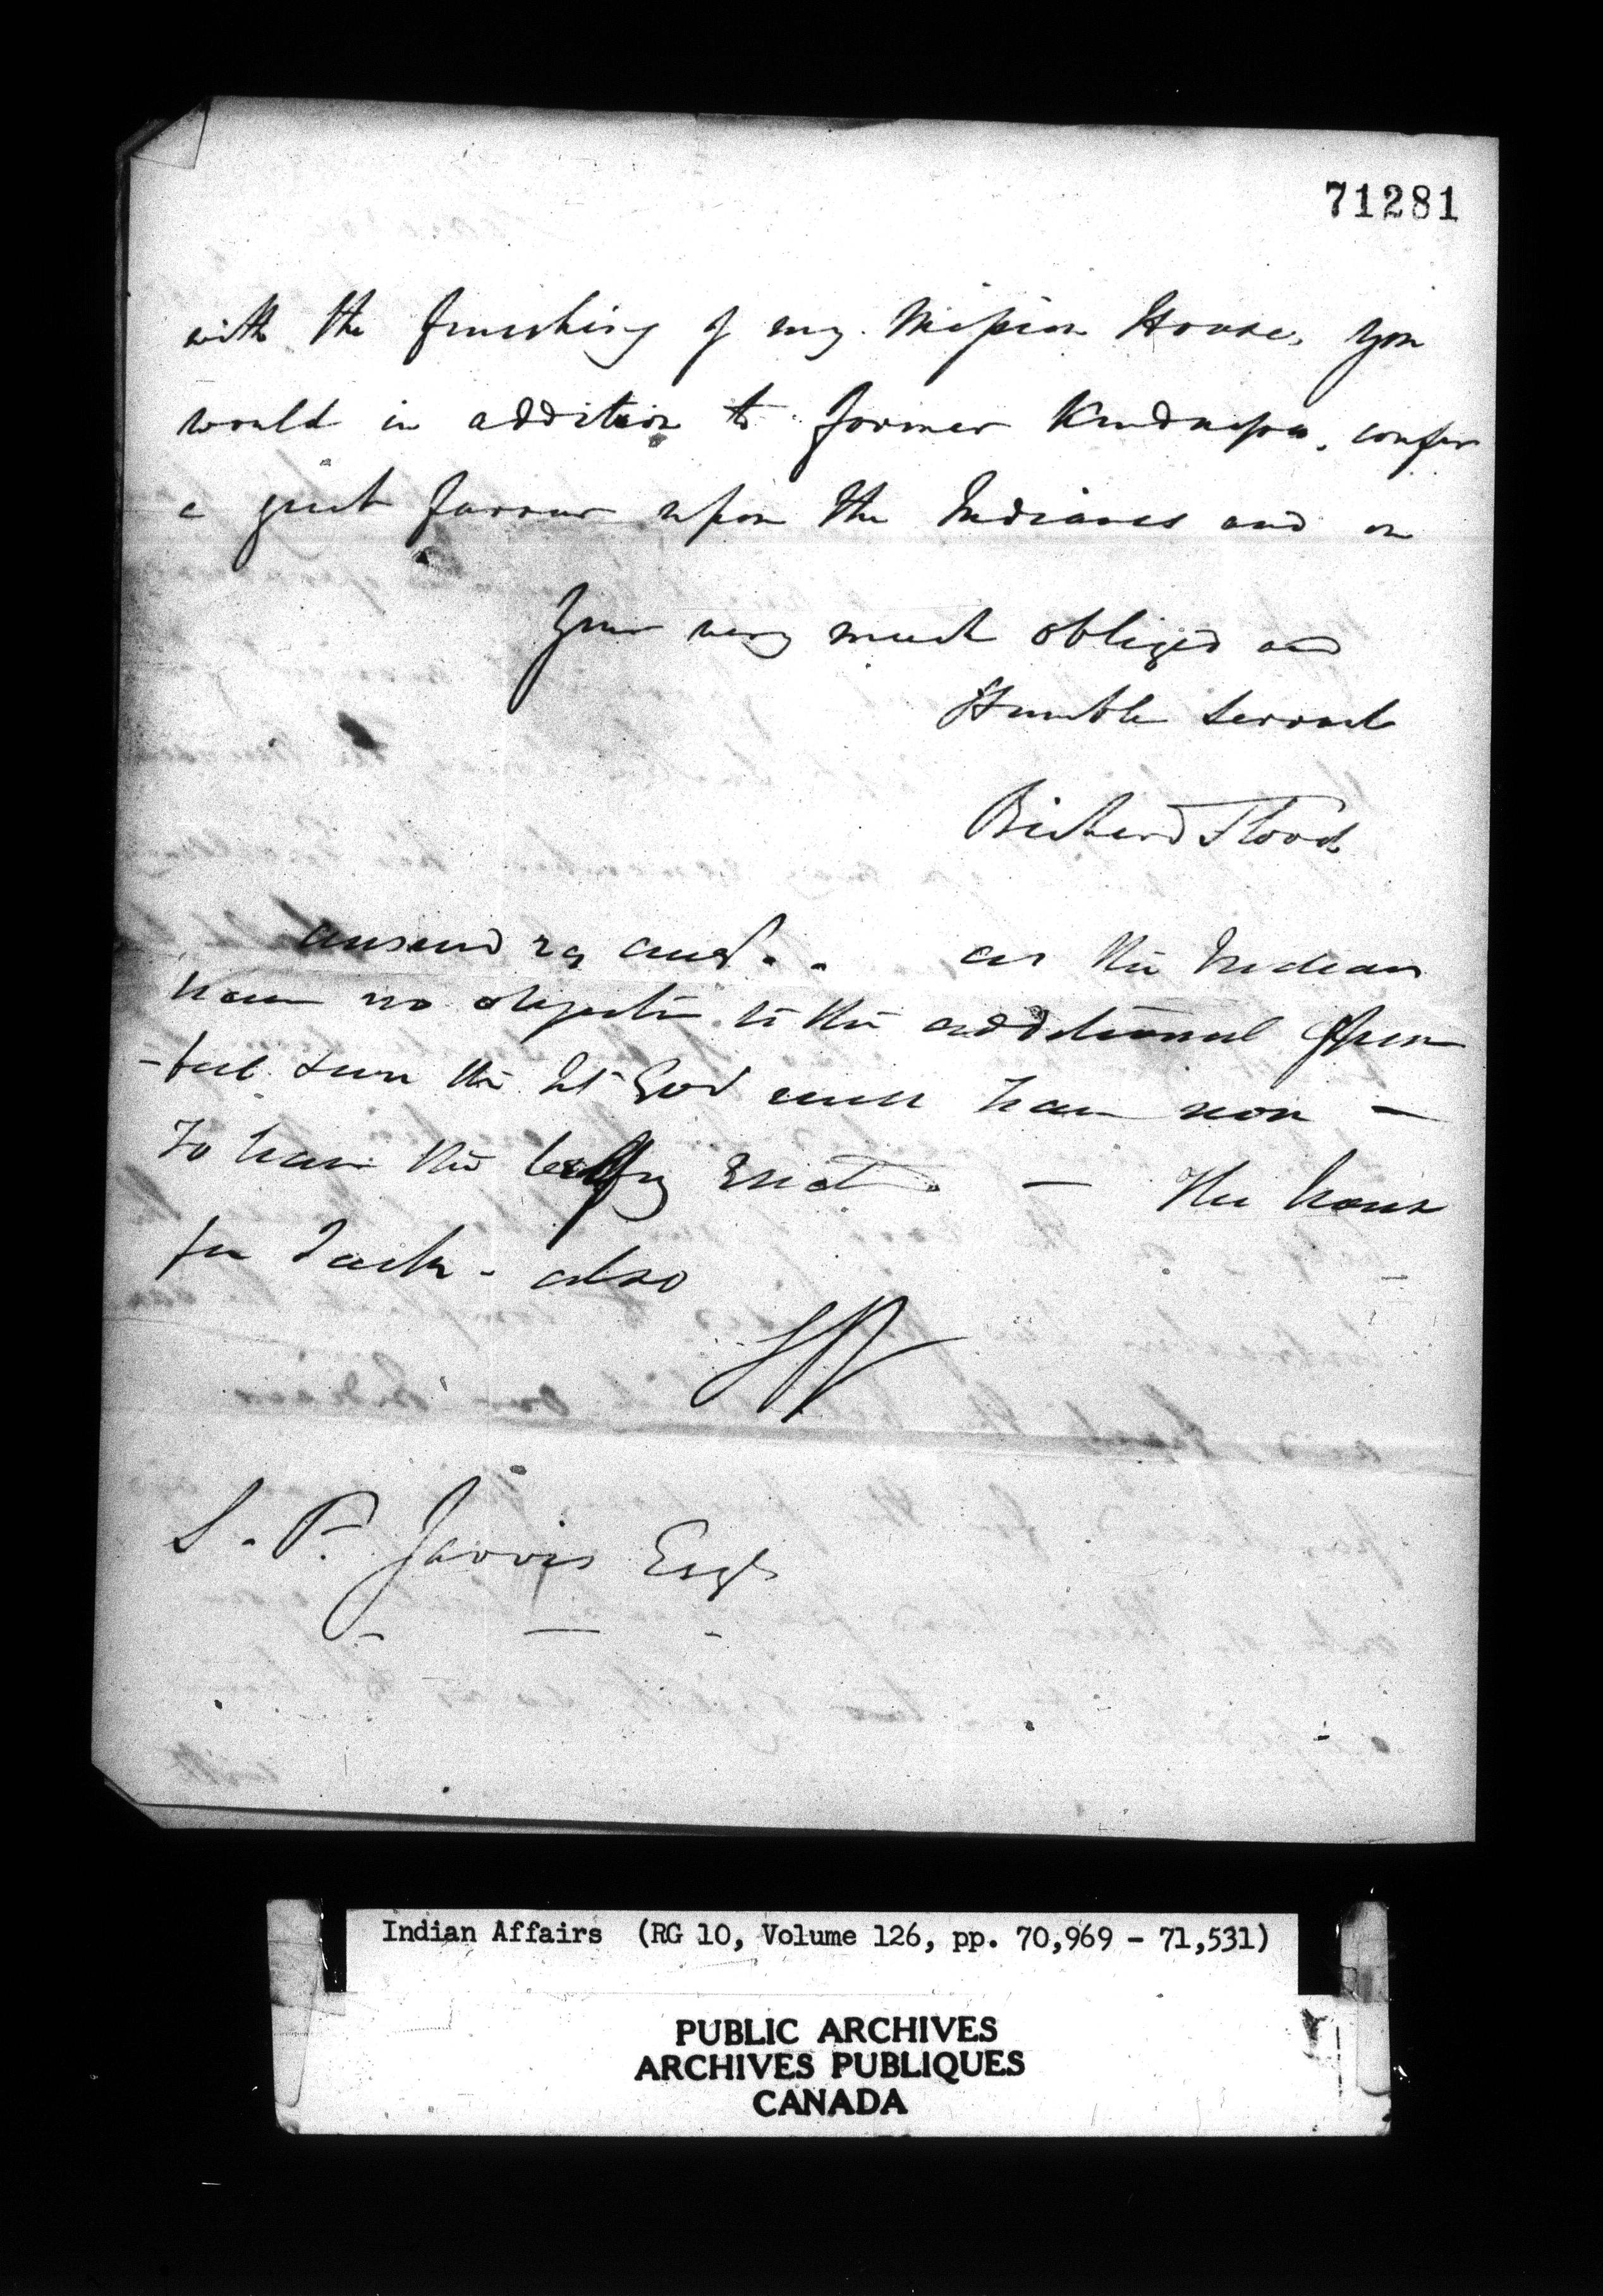 71281
with the finishing of my Mission House, you
would in addition to former Kindness, confer
a great favour upon the Indians and on
Your very much obliged and
Humble Servant
Richard Flood
as the Indians
have no objection to the additional
the Lt Govr will have non —
To have the erected — The house
for also
S. P. Jarvis Esqr
Indian Affairs (RG 10, Volume 126, pp. 70,969 - 71,531)
PUBLIC ARCHIVES
ARCHIVES PUBLIQUES
CANADA